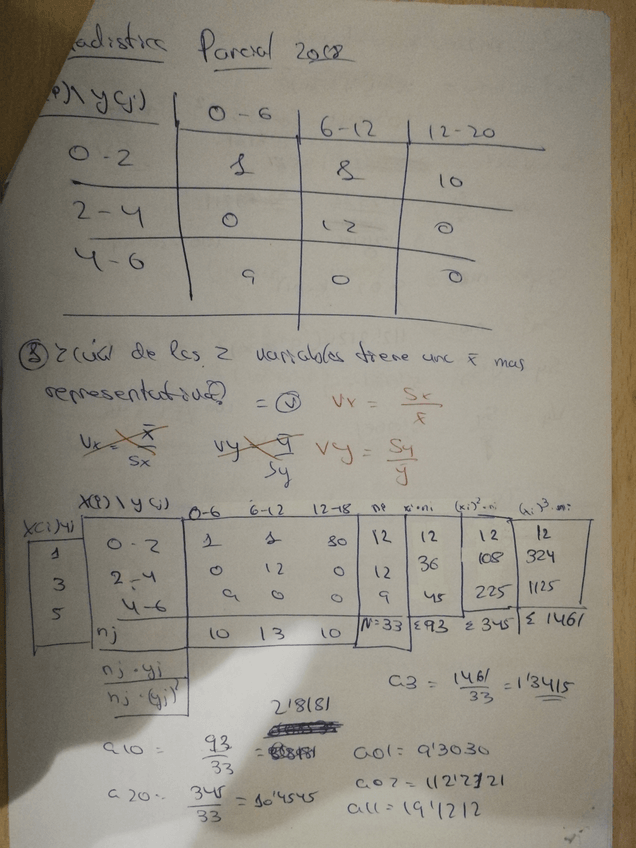 adistica Parcial 2018
P) \ Y (j) 0-6 6-12 12-20
0-2 1 8 10
2-4 0 12 0
4-6 9 0 0
① ¿Cuál de las 2 variables tiene una x̄ mas
representativa? = Ⓥ Vx = Sx/x̄
Vx = x̄/Sx Vy = ȳ/Sy Vy = Sy/ȳ
X(i) \ Y(j) 0-6 6-12 12-18 ni xi·ni (xi)²·ni (xi)³·ni
X(i) Yj
1 0-2 1 1 10 12 12 12 12
3 2-4 0 12 0 12 36 108 324
5 4-6 9 0 0 9 45 225 1125
nj 10 13 10 N=33 Σ93 Σ345 Σ1461
nj·yj
nj·(yj)²
a3 = 1461/33 = 1'3415
2'8181
a10 = 93/33 = a01 = 9'3030
a20 = 345/33 = 10'4545 a02 = 112'2121
a11 = 19'1212